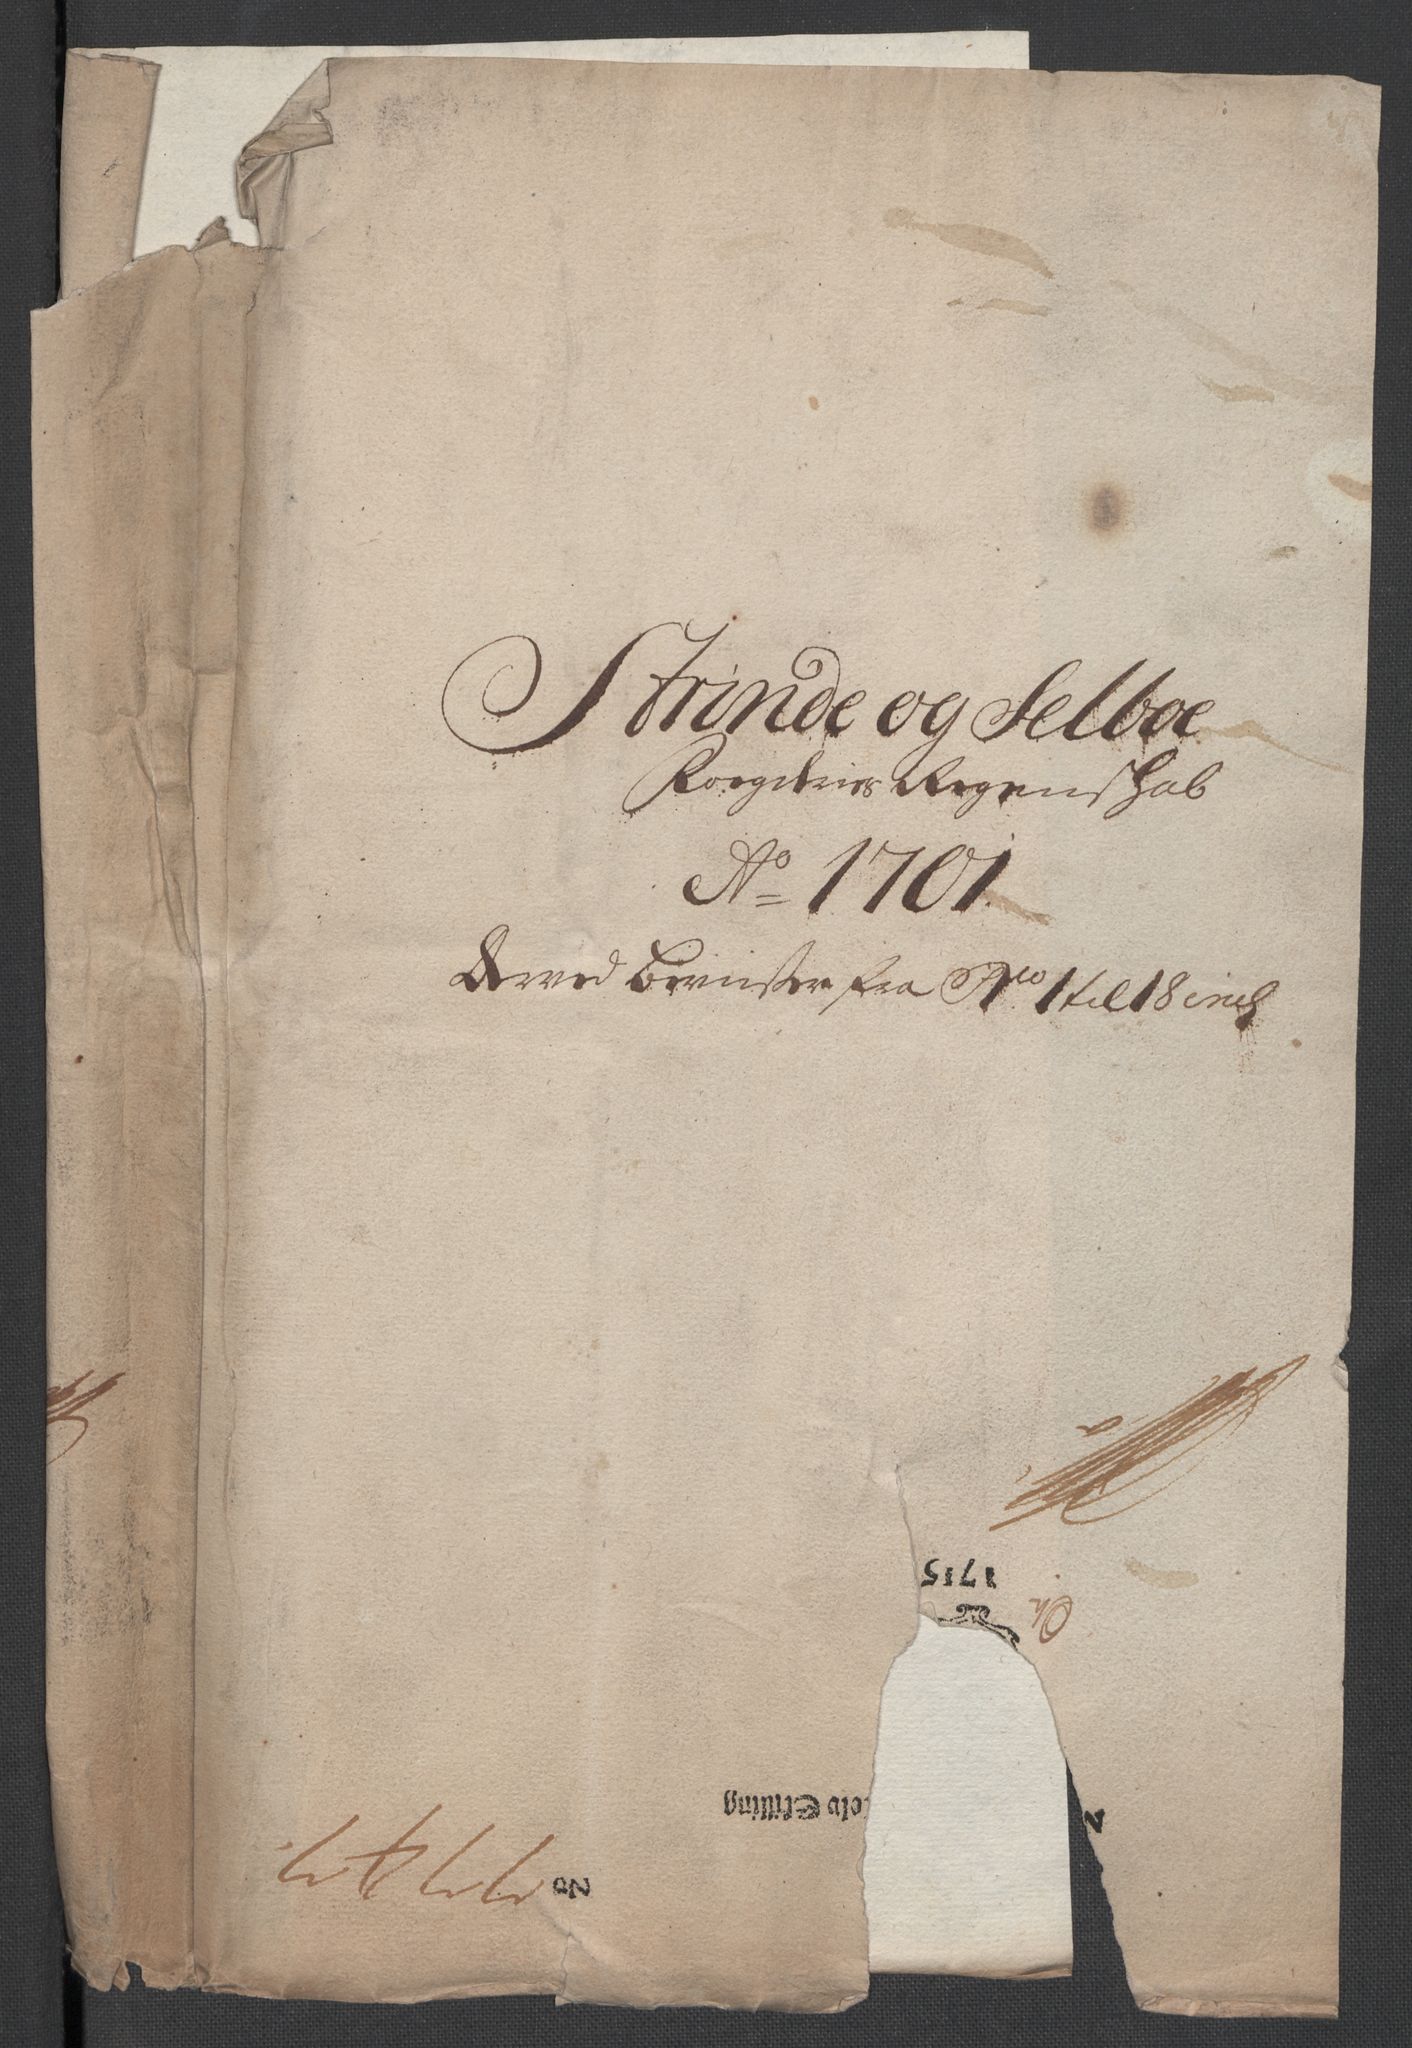 Strinde og Selboe
Fougderies Regenskab
Ao 1701
Derved beviiser fra No 1 til 18 incl
1715
tolv Skilling
No